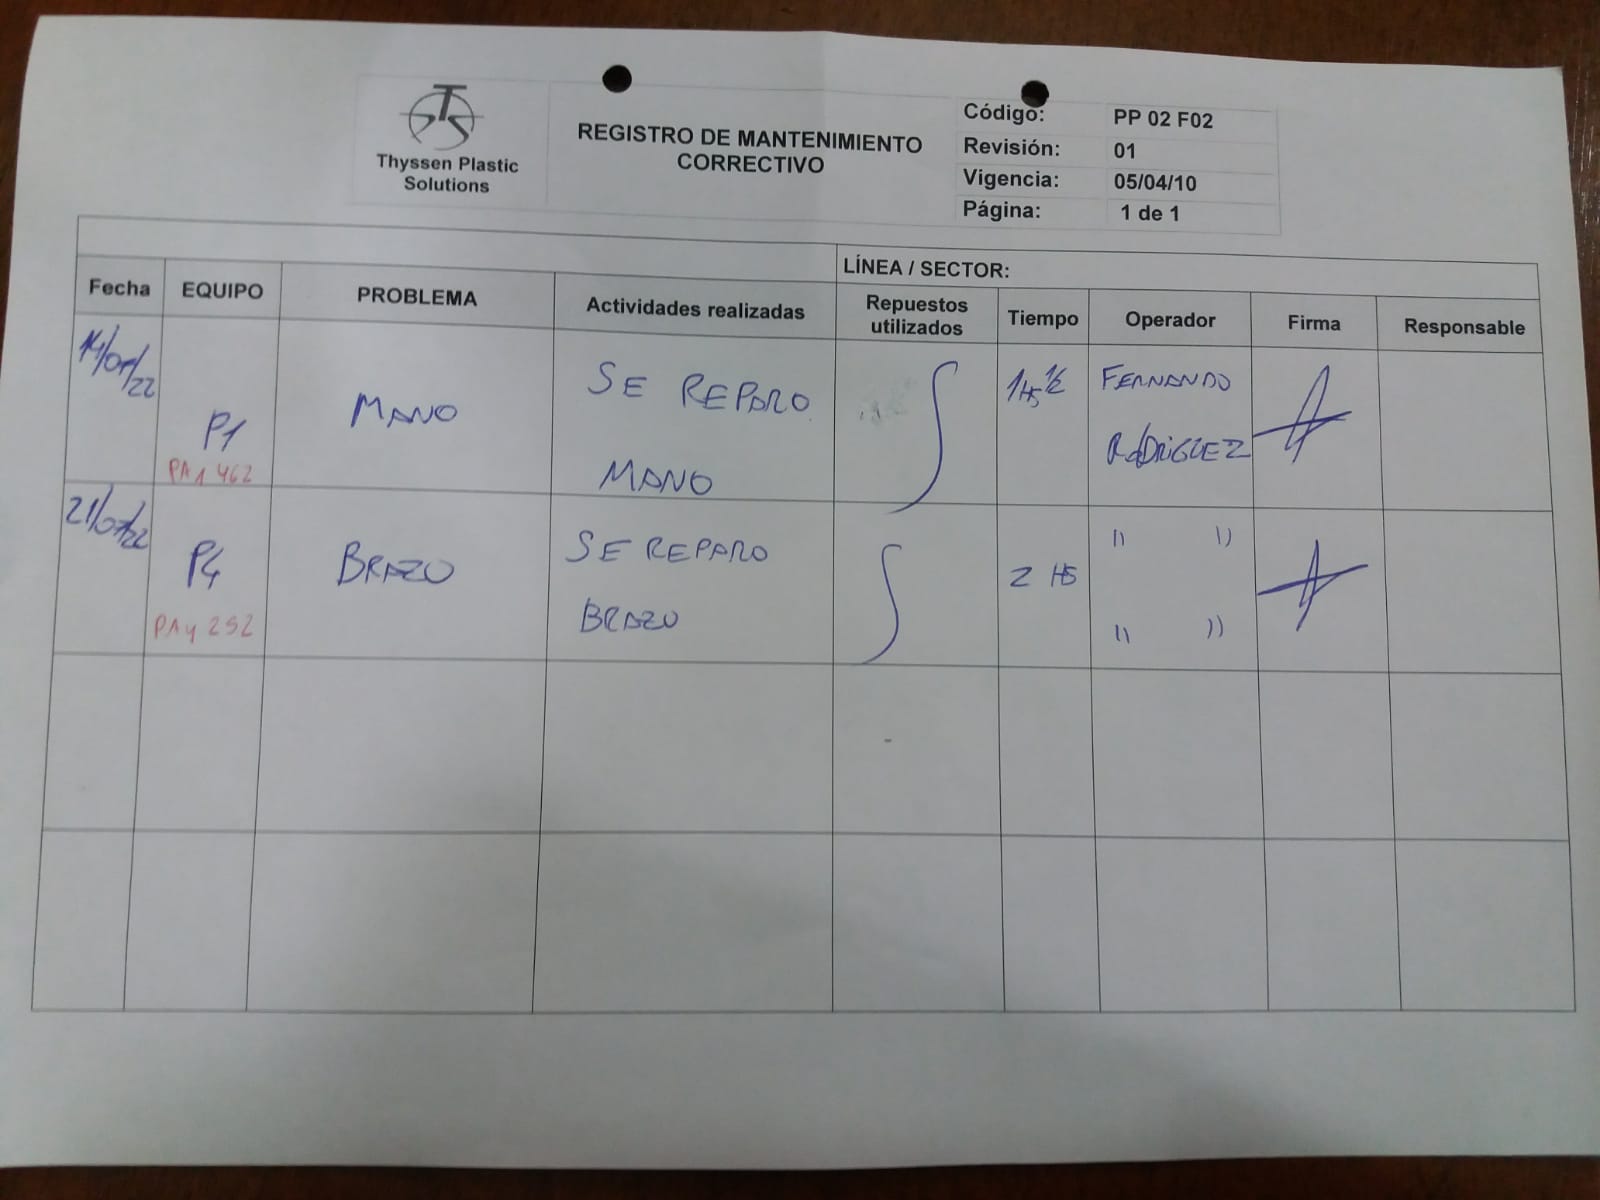 Thyssen Plastic
Solutions
REGISTRO DE MANTENIMIENTO
CORRECTIVO
Código: PP 02 F02
Revisión: 01
Vigencia: 05/04/10
Página: 1 de 1
LÍNEA / SECTOR:
Fecha EQUIPO PROBLEMA Actividades realizadas Repuestos utilizados Tiempo Operador Firma Responsable
14/07/22
P1
PA1 462
MANO
SE REPARO
MANO
1HS 1/2
FERNANDO
RODRIGUEZ
21/07/22
P4
PA4 252
BRAZO
SE REPARO
BRAZO
2 HS
" "
" "